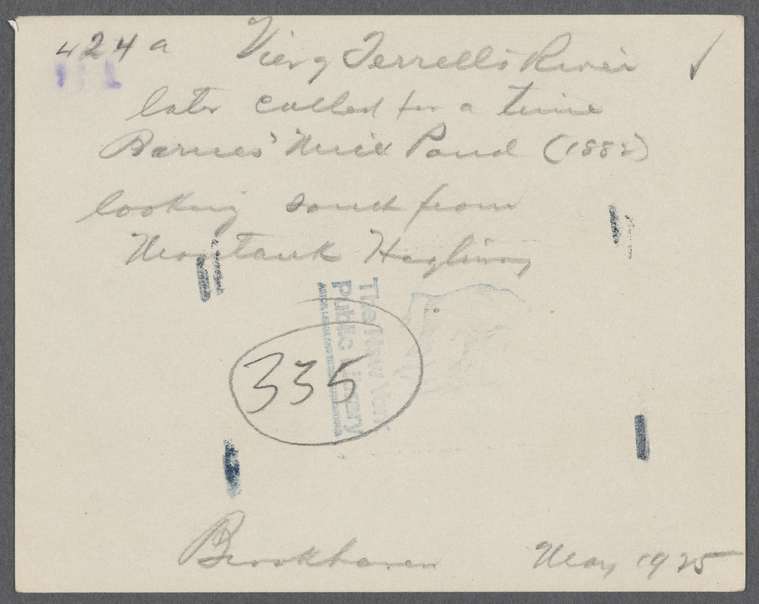 424a View of Terrell's River
later called for a time
Barnes' Mill Pond (1882)
looking south from
Montauk Highway
The New York
Public Library
335
Brookhaven May 1925